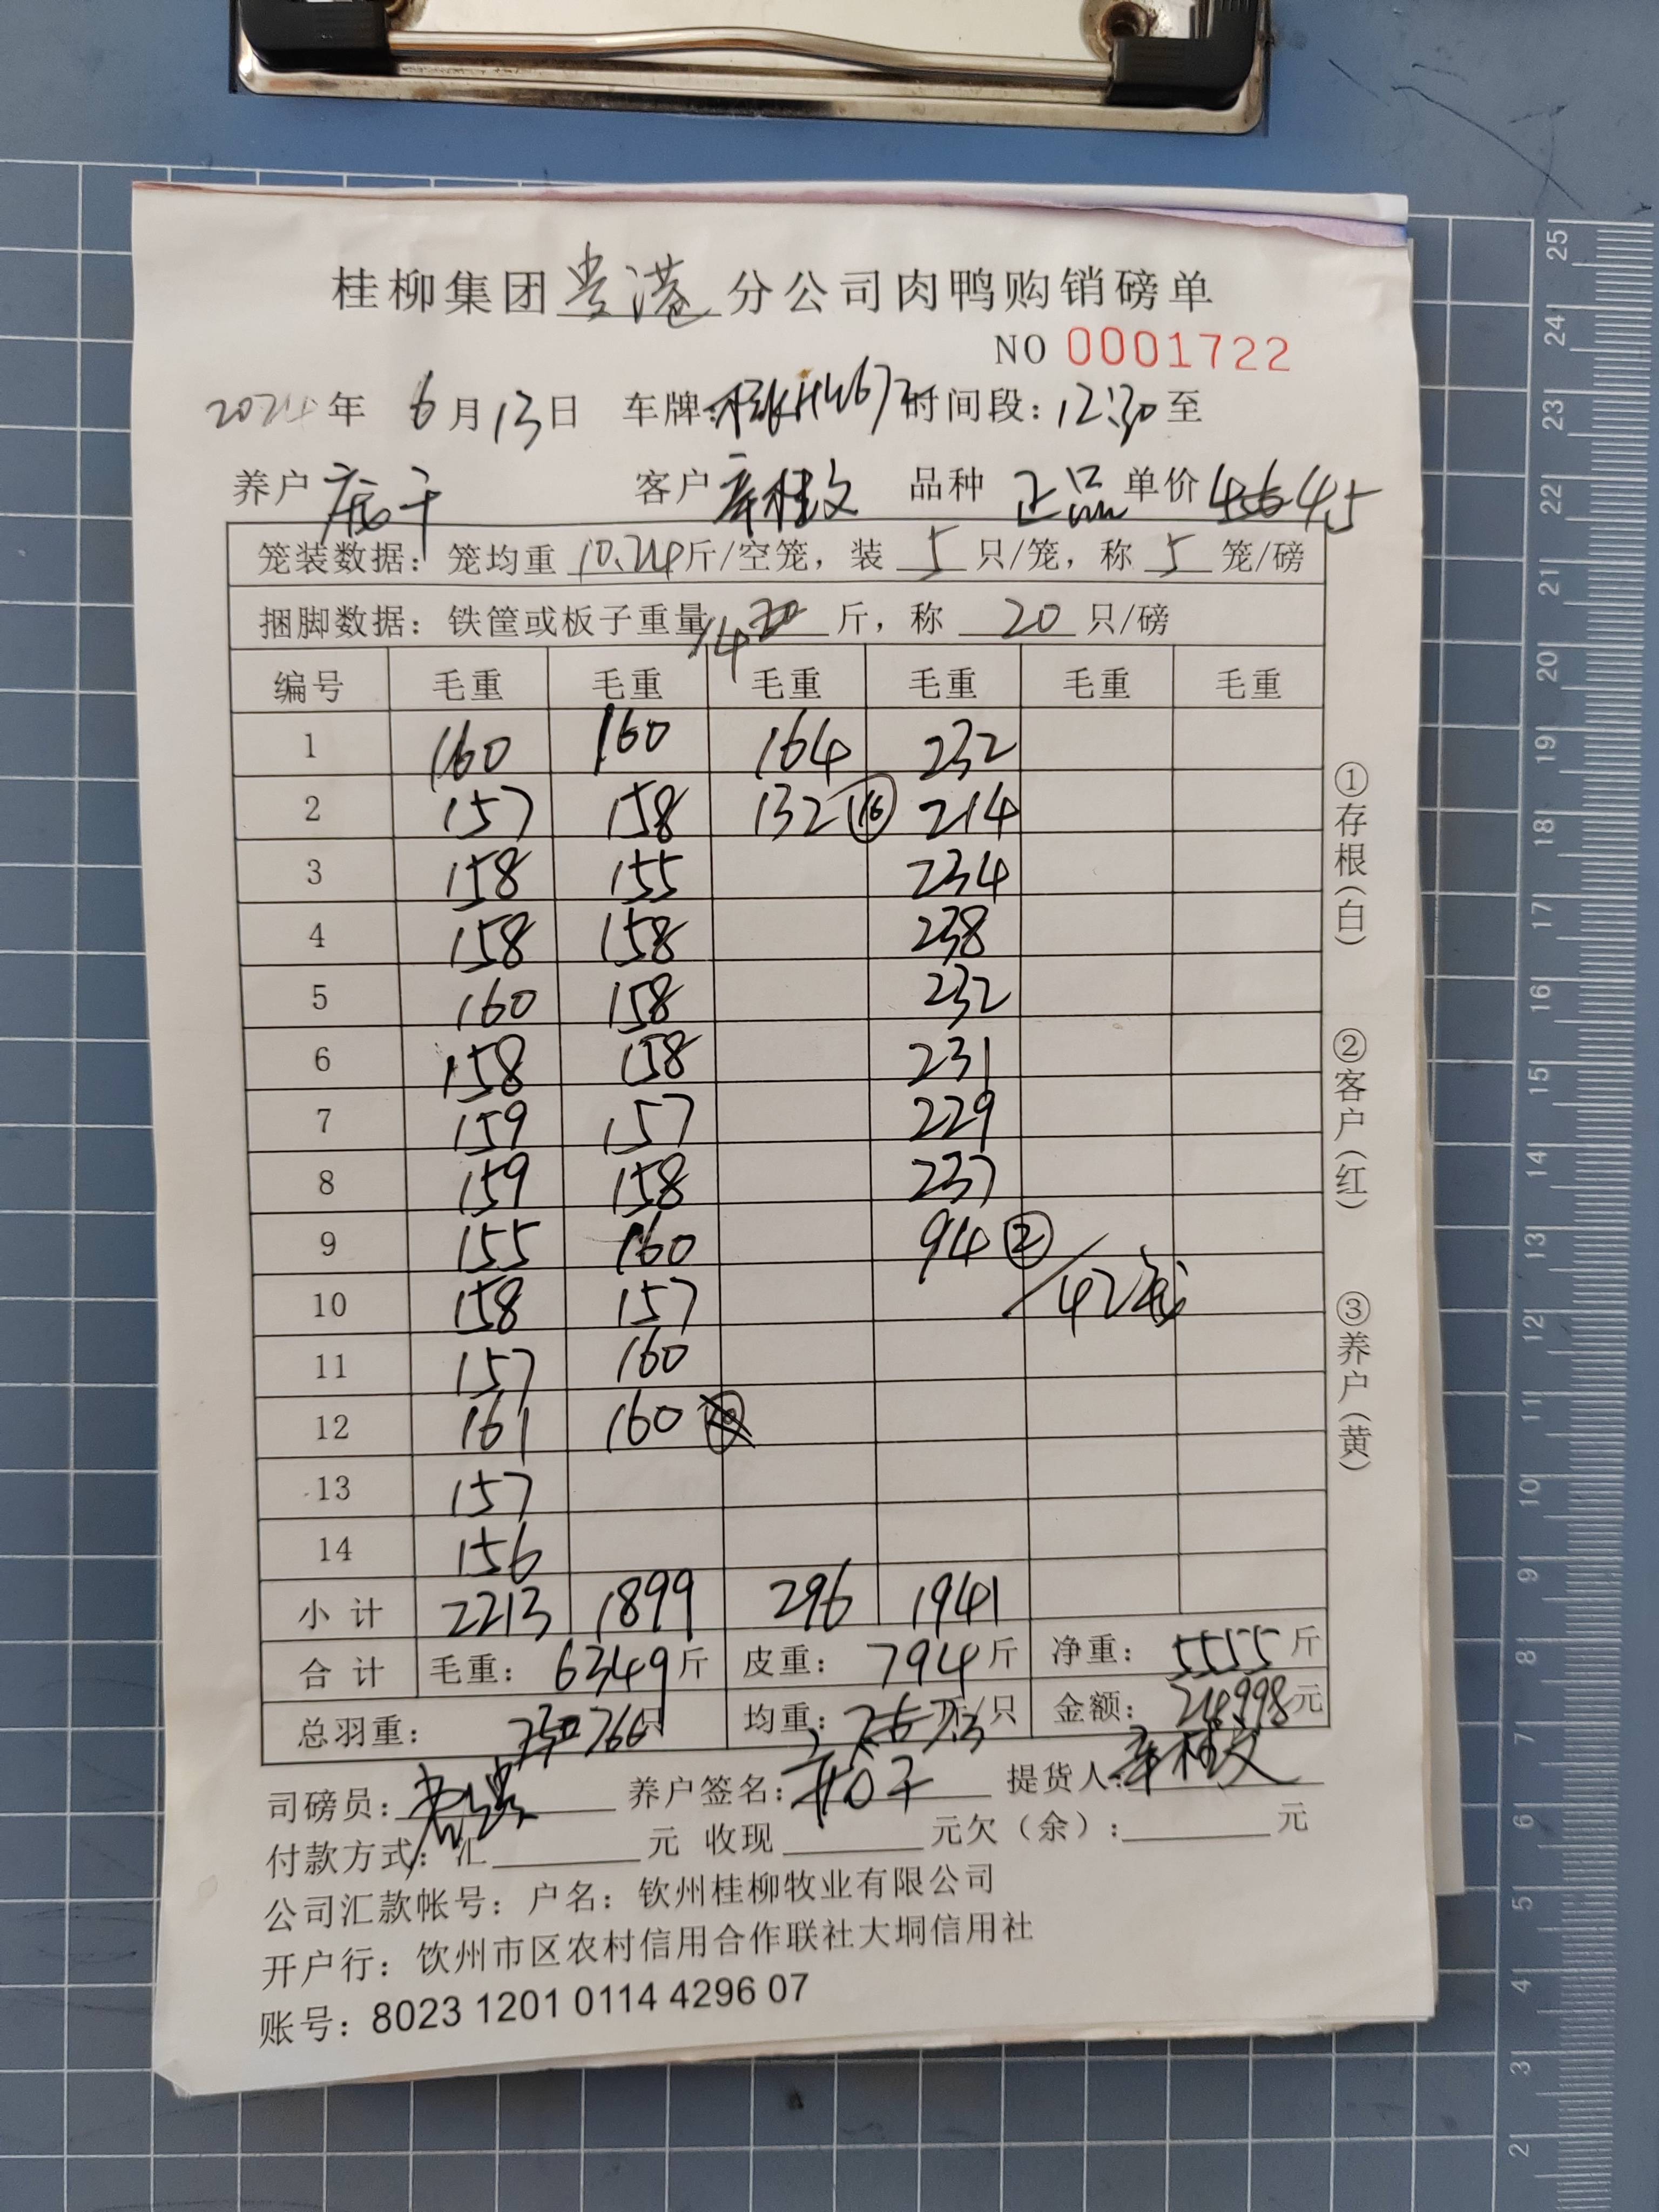 桂柳集团贵港分公司肉鸭购销磅单
NO 0001722
2024年 6月13日 车牌: 时间段:12:30至
养户 客户 辛桂文 品种 正品 单价 4.5
笼装数据: 笼均重 10.24斤/空笼, 装 5 只/笼, 称 5 笼/磅
捆脚数据: 铁筐或板子重量 14 斤, 称 20 只/磅
编号 毛重 毛重 毛重 毛重 毛重 毛重
1 160 160 164 232
2 157 158 132 ⑯ 214
3 158 155 234
4 158 158 238
5 160 158 232
6 158 158 231
7 159 157 229
8 159 158 237
9 155 160 94 ②
10 158 157 /42笼
11 157 160
12 161 160
13 157
14 156
小计 2213 1899 296 1941
合计 毛重: 6349斤 皮重: 794斤 净重: 5555斤
总羽重: 766只 均重: 7.3斤/只 金额: 24998元
司磅员: 养户签名: 提货人: 辛桂文
付款方式: 汇 元 收现 元欠(余): 元
公司汇款帐号: 户名: 钦州桂柳牧业有限公司
开户行: 钦州市区农村信用合作联社大垌信用社
账号: 8023 1201 0114 4296 07
①存根(白)
②客户(红)
③养户(黄)
25
24
23
22
21
20
19
18
17
16
15
14
13
12
11
10
9
8
7
6
5
4
3
2